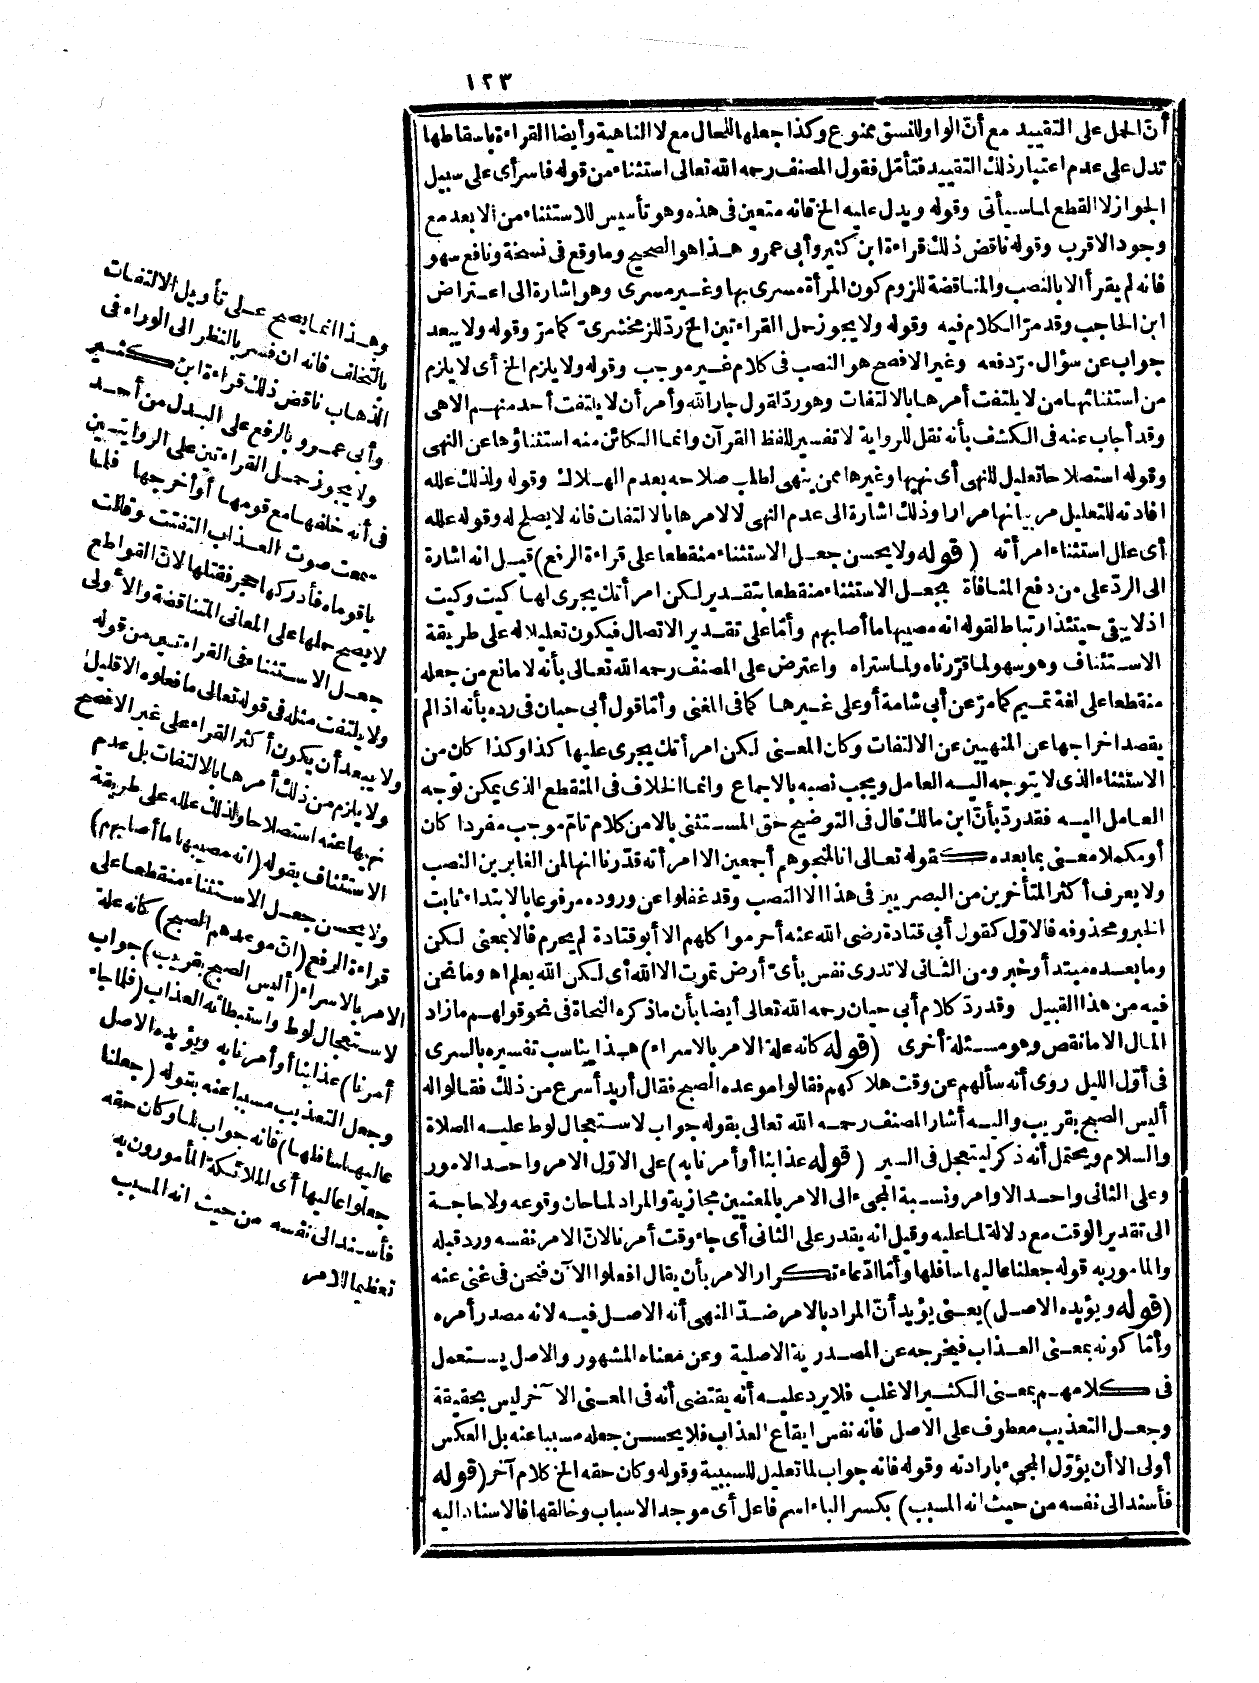 ١٢٣
أن الحمل على التقييد مع أن الواو للنسق ممنوع وكذا جعلها للحال مع لا الناهية وأيضا القراءة باسقاطها
تدل على عدم اعتبار ذلك التقييد فتأمل فقول المصنف رحمه الله تعالى استثناء من قوله فاسر أى على سبيل
الجواز لا القطع لما سيأتى وقوله ويدل عليه الخ فانه متعين فى هذه وهو تأسيس للاستثناء من الابعد مع
وجود الاقرب وقوله ناقض ذلك قراءة ابن كثير وأبى عمرو هذا هو الصحيح وما وقع فى نسخة ونافع سهو
فانه لم يقرأ الا بالنصب والمناقضة للزوم كون المرأة مسرى بها وغير مسرى وهو اشارة الى اعتراض
ابن الحاجب وقد مر الكلام فيه وقوله ولا يجوز حمل القراءتين الخ رد للزمخشرى كما مر وقوله ولا يبعد
جواب عن سؤال مر دفعه وغير الافصح هو النصب فى كلام غير موجب وقوله ولا يلزم الخ أى لا يلزم
من استثنائها من لا يلتفت أمرها بالالتفات وهو رد لقول جار الله وأمر أن لا يلتفت أحد منهم الا هى
وقد أجاب عنه فى الكشف بأنه نقل للرواية لا تفسير للفظ القرآن وانما الكائن منه استثناؤها عن النهى
وقوله استصلاحا تعليل للنهى أى نهيها وغيرها ممن ينهى لطلب صلاحه بعدم الهلاك وقوله ولذلك علله
افادته للتعليل مر بيانها مرارا وذلك اشارة الى عدم النهى لا لامرها بالالتفات فانه لا يصلح له وقوله علله
أى علل استثناء امرأته (قوله ولا يحسن جعل الاستثناء منقطعا على قراءة الرفع) قيل انه اشارة
الى الرد على من دفع المنافاة بجعل الاستثناء منقطعا بتقدير لكن امرأتك يجرى لها كيت وكيت
اذ لا يبقى حينئذ ارتباط لقوله انه مصيبها ما أصابهم وأما على تقدير الاتصال فيكون تعليلا له على طريقة
الاستئناف وهو سهو لما قررناه ولما ستراه واعترض على المصنف رحمه الله تعالى بأنه لا مانع من جعله
منقطعا على لغة تميم كما مر عن أبى شامة أو على غيرها كما فى المغنى وأما قول أبى حيان فى رده بأنه اذا لم
يقصد اخراجها عن المنهيين عن الالتفات وكان المعنى لكن امرأتك يجرى عليها كذا وكذا كان من
الاستثناء الذى لا يتوجه اليه العامل ويجب نصبه بالاجماع وانما الخلاف فى المنقطع الذى يمكن توجه
العامل اليه فقد رد بأن ابن مالك قال فى التوضيح حق المستثنى بالا من كلام تام موجب مفردا كان
أو مكملا معنى بما بعده كقوله تعالى انا لمنجوهم أجمعين الا امرأته قدرنا انها لمن الغابرين النصب
ولا يعرف أكثر المتأخرين من البصريين فى هذا الا النصب وقد غفلوا عن وروده مرفوعا بالابتداء ثابت
الخبر ومحذوفه فالاول كقول أبى قتادة رضى الله عنه أحرموا كلهم الا أبو قتادة لم يحرم فالا بمعنى لكن
وما بعده مبتدأ وخبر ومن الثانى لا تدرى نفس بأى أرض تموت الا الله أى لكن الله يعلم اه وما نحن
فيه من هذا القبيل وقد رد كلام أبى حيان رحمه الله تعالى أيضا بأن ما ذكره النحاة فى نحو قولهم ما زاد
المال الا ما نقص وهو مسئلة أخرى (قوله كانه علة الامر بالاسراء) هذا يناسب تفسيره بالسرى
فى أول الليل روى أنه سألهم عن وقت هلاكهم فقالوا موعده الصبح فقال أريد أسرع من ذلك فقالوا له
أليس الصبح بقريب واليه أشار المصنف رحمه الله تعالى بقوله جواب لاستعجال لوط عليه الصلاة
والسلام ويحتمل أنه ذكر ليتعجل فى السير (قوله عذابنا أو أمرنا به) على الاول الامر واحد الامور
وعلى الثانى واحد الاوامر ونسبة المجىء الى الامر بالمعنيين مجازية والمراد لما حان وقوعه ولا حاجة
الى تقدير الوقت مع دلالة لما عليه وقيل انه يقدر على الثانى أى جاء وقت أمرنا لان الامر نفسه ورد قبله
والمامور به قوله جعلنا عاليها سافلها وأما ادعاء تكرار الامر بأن يقال افعلوا الآن فنحن فى غنى عنه
(قوله ويؤيده الاصل) يعنى يؤيد أن المراد بالامر ضد النهى أنه الاصل فيه لانه مصدر أمره
وأما كونه بمعنى العذاب فيخرجه عن المصدرية الاصلية وعن معناه المشهور والاصل يستعمل
فى كلامهم بمعنى الكثير الاغلب فلا يرد عليه أنه يقتضى أنه فى المعنى الآخر ليس بحقيقة
وجعل التعذيب معطوف على الاصل فانه نفس ايقاع العذاب فلا يحسن جعله مسببا عنه بل العكس
أولى الا أن يؤول المجىء بارادته وقوله فانه جواب لما تعليل للسببية وقوله وكان حقه الخ كلام آخر (قوله
فأسند الى نفسه من حيث انه المسبب) بكسر الباء اسم فاعل أى موجد الاسباب وخالقها فالاسناد اليه
وهذا انما يصح على تأويل الالتفات
بالتخلف فانه ان فسر بالنظر الى الوراء فى
الذهاب ناقض ذلك قراءة ابن كثير
وأبى عمرو بالرفع على البدل من أحد
ولا يجوز حمل القراءتين على الروايتين
فى أنه خلفها مع قومها أو أخرجها فلما
سمعت صوت العذاب التفتت وقالت
يا قوماه فأدركها حجر فقتلها لان القواطع
لا يصح حملها على المعانى المتناقضة والأولى
جعل الاستثناء فى القراءتين من قوله
ولا يلتفت مثله فى قوله تعالى ما فعلوه الا قليل
ولا يبعد أن يكون أكثر القراء على غير الافصح
ولا يلزم من ذلك أمرها بالالتفات بل عدم
نهيها عنه استصلاحا ولذلك علله على طريقة
الاستئناف بقوله (انه مصيبها ما أصابهم)
ولا يحسن جعل الاستثناء منقطعا على
قراءة الرفع (ان موعدهم الصبح) كانه علة
الامر بالاسراء (أليس الصبح بقريب) جواب
لاستعجال لوط واستبطائه العذاب (فلما جاء
أمرنا) عذابنا أو أمرنا به ويؤيده الاصل
وجعل التعذيب مسببا عنه بقوله (جعلنا
عاليها سافلها) فانه جواب لما وكان حقه
جعلوا عاليها أى الملائكة المأمورون به
فأسند الى نفسه من حيث انه المسبب
تعظيما للامر